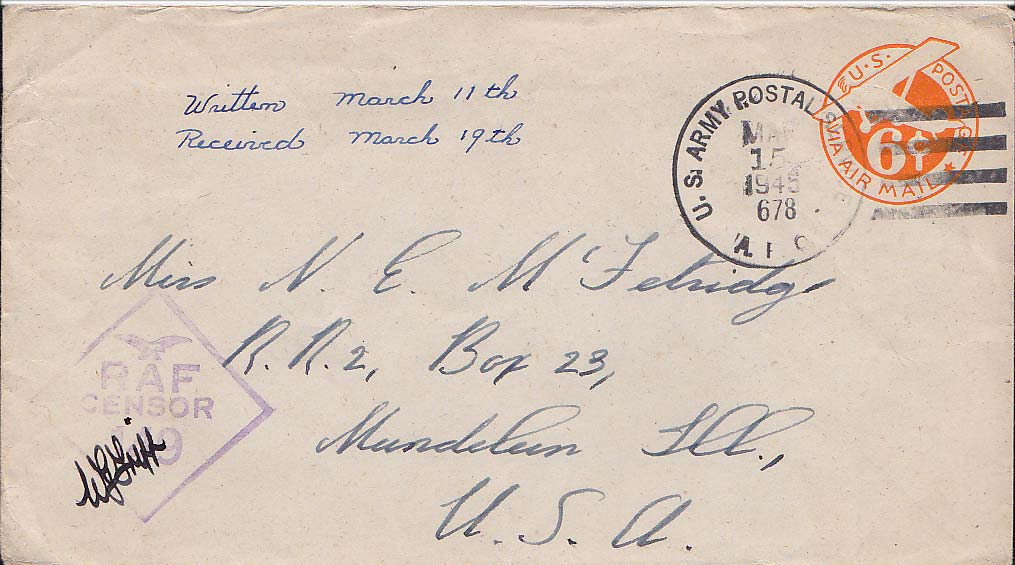 Written March 11th
Received March 19th
U.S. ARMY POSTAL
MAR
15
1945
678
A.P.O.
U.S. POSTAGE
VIA AIR MAIL
6¢
Miss N. E. McFetridge
R.R.2, Box 23,
Mundelein Ill.,
U.S.A.
RAF
CENSOR